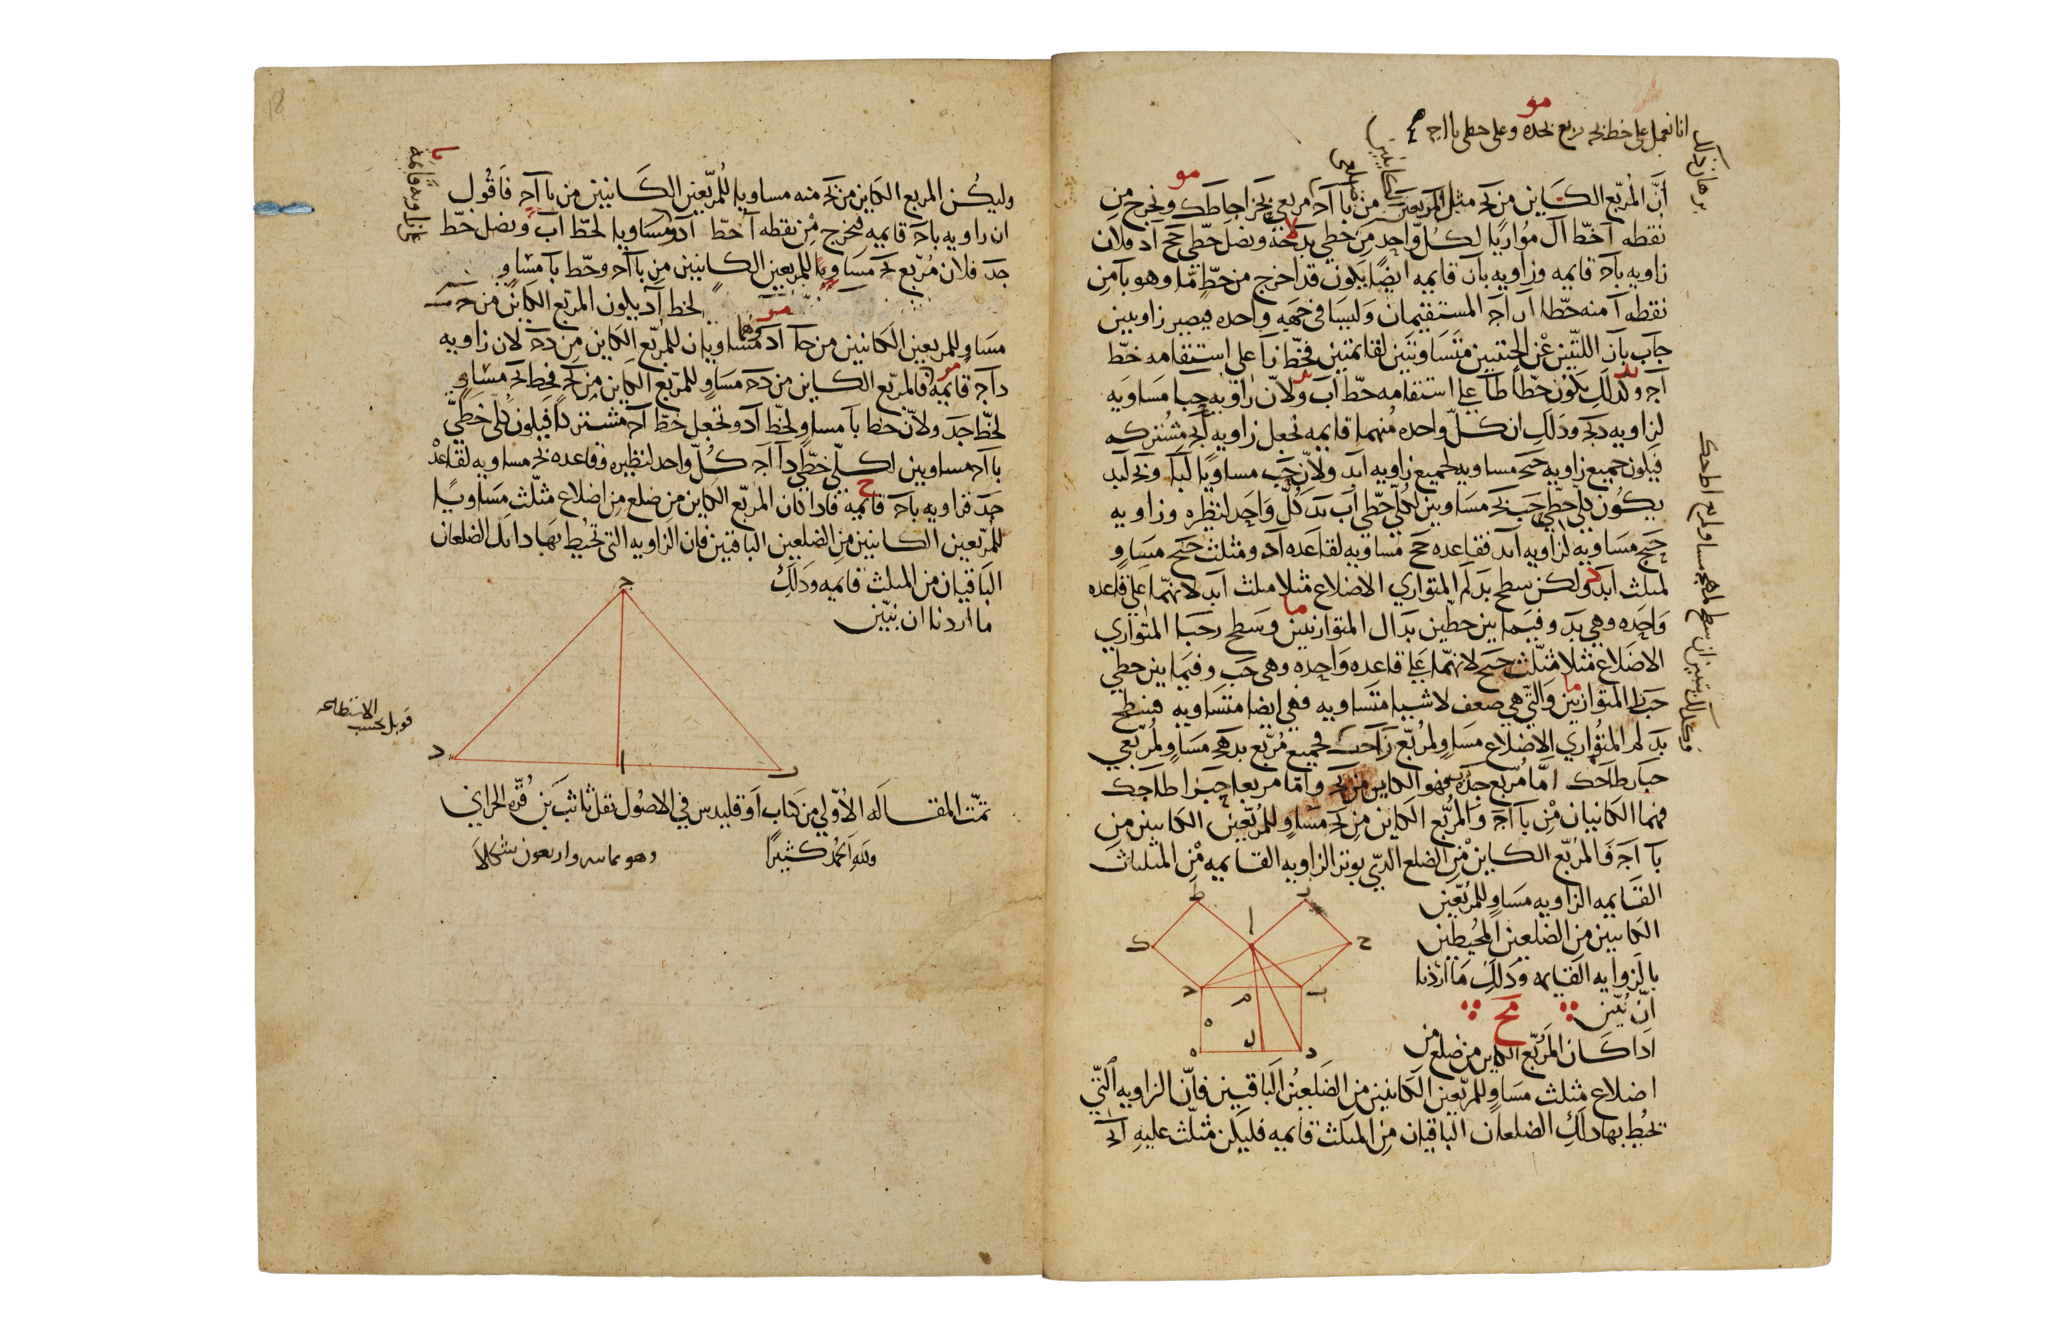 مو
انا نعمل على خط بج مربع بجده وعلى خطي با اج
برهان ذلك
مو
أن المربع الكاين من بج مثل المربعين الكاينين من با اج مربعي بحزا جاطك ونخرج من
نقطه ا خط ال موازيا لكل واحد من خطي بد جه ونصل خطي حج اد فلان
زاويه باج قايمه وزاويه باز قايمه ايضا يكون قد اخرج من خط ما وهو با من
نقطه ا منه خطا از اج المستقيمان وليسا في جهه واحده فيصير زاويتين
جاب باز اللتين عن الجنبتين متساويتين لقائمتين فخط زا على استقامه خط
اج وكذلك يكون خط طا على استقامه خط اب ولان زاويه حبا مساويه
لزاويه دبج وذلك ان كل واحده منهما قايمه نجعل زاويه ابج مشتركه
فيكون جميع زاويه حبج مساويه لجميع زاويه ابد ولان حب مساويا لبا وبج لبد
يكون كلي خطي حب بج مساويين لكلي خطي اب بد كل واحد لنظيره وزاويه
حبج مساويه لزاويه ابد فقاعده حج مساويه لقاعده اد ومثلث حبج مساو
لمثلث ابد ولكن سطح بدلم المتوازي الاضلاع مثلا مثلث ابد لانهما على قاعده
واحده وهي بد وفيما بين خطين بد ال المتوازيين وسطح زحبا المتوازي
الاضلاع مثلا مثلث حبج لانهما على قاعده واحده وهي حب وفيما بين خطي
حب زج المتوازيين والتي هي ضعف لاشيا متساويه فهي ايضا متساويه فسطح
بدلم المتوازي الاضلاع مساو لمربع زاحب فجميع مربع بدهج مساو لمربعي
حباز طاجك اما مربع جدبه فهو الكاين من بج واما مربعا حبزا طاجك
فهما الكاينان من با اج والمربع الكاين من بج مساو للمربعين الكاينين من
با اج فالمربع الكاين من الضلع الذي يوتر الزاويه القايمه من المثلثات
القايمه الزاويه مساو للمربعين
الكاينين من الضلعين المحيطين
بالزوايه القايمه وذلك ما اردنا
ان نبين
مح
اذا كان المربع الكاين من ضلع من
اضلاع مثلث مساو للمربعين الكاينين من الضلعين الباقيين فان الزاويه التي
تحيط بها ذلك الضلعان الباقيان من المثلث قايمه فليكن مثلث عليه ابج
ط
ز
ا
ك
ح
ج
م
ب
ه
ل
د
وليكن المربع الكاين من بج منه مساويا للمربعين الكاينين من با اج فاقول
ان زاويه باج قايمه فنخرج من نقطه ا خط اد مساويا لخط اب ونصل خط
جد فلان مربع بج مساويا للمربعين الكاينين من با اج وخط با مساو
لخط اد يكون المربع الكاين من جب
مساو للمربعين الكاينين من جا اد وهما مساويان للمربع الكاين من دج لان زاويه
داج قايمه فالمربع الكاين من دج مساو للمربع الكاين من بج فخط بج مساو
لخط جد ولان خط با مساو لخط اد ونجعل خط اج مشتركا فيكون كلي خطي
با اج مساويين لكلي خطي دا اج كل واحد لنظيره وقاعده بج مساويه لقاعده
جد فزاويه باج قايمه فاذا كان المربع الكاين من ضلع من اضلاع مثلث مساويا
للمربعين الكاينين من الضلعين الباقيين فان الزاويه التي تحيط بها ذانك الضلعان
الباقيان من المثلث قايمه وذلك
ما اردنا ان نبين
ج
د
ا
ب
قوبل بحسب الاستطاعه
تمت المقاله الأولى من كتاب اوقليدس في الاصول نقل ثابت بن قره الحراني
ولله الحمد كثيرا
وهو ثمانيه واربعون شكلا
18